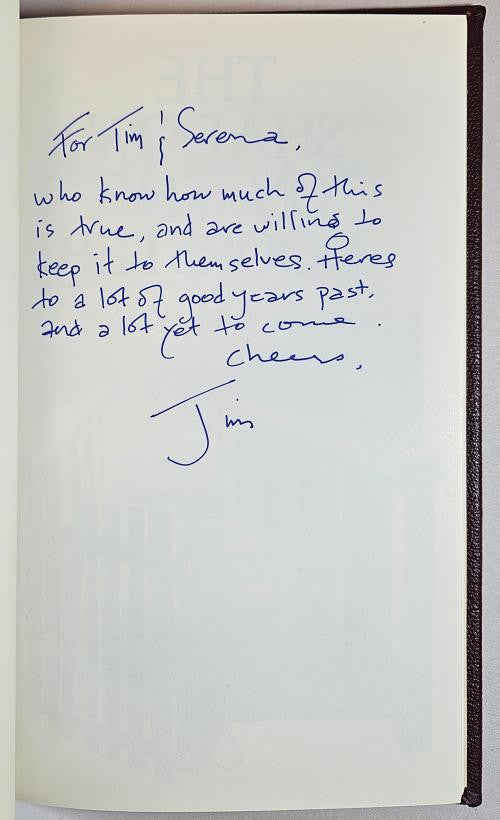 For Tim & Serena,
who know how much of this
is true, and are willing to
keep it to themselves. Heres
to a lot of good years past,
and a lot yet to come.
Cheers,
Jim
THE